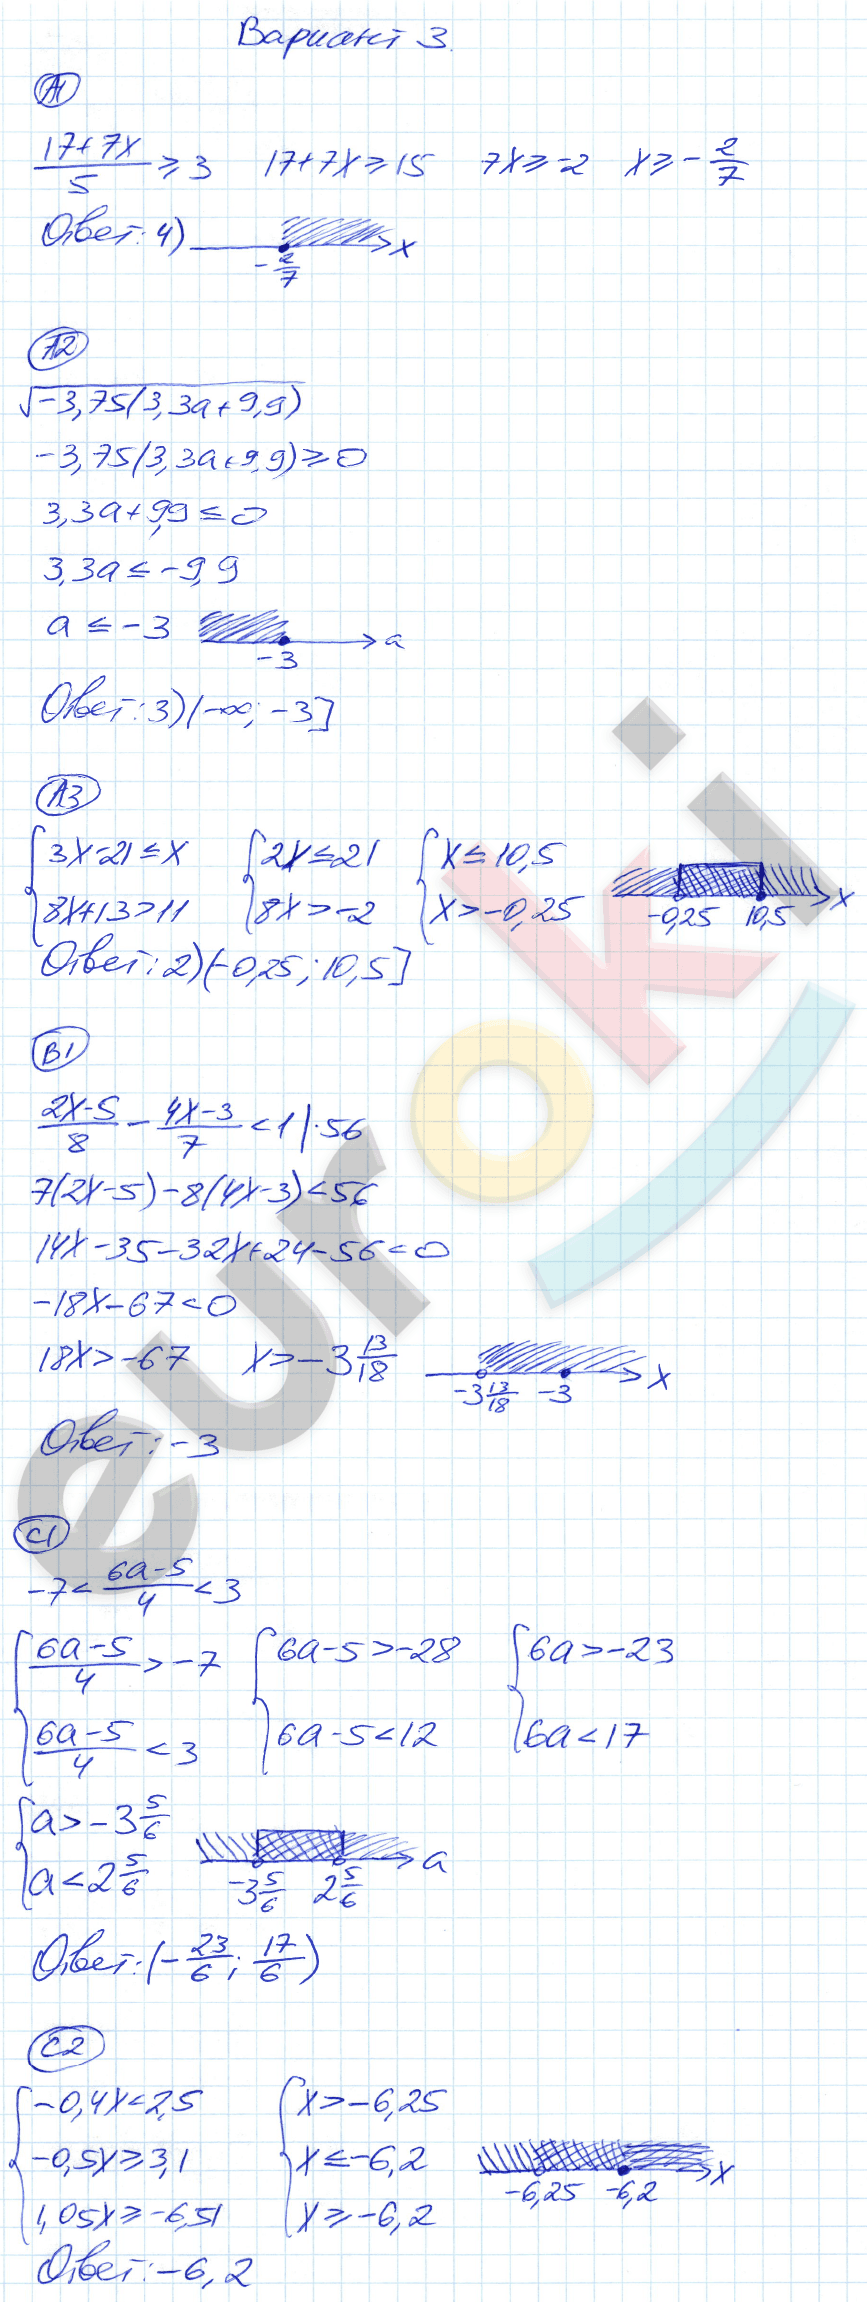 Вариант 3.
А1
(17+7x)/5 ≥ 3   17+7x ≥ 15   7x ≥ -2   x ≥ -2/7
Ответ: 4) x
-2/7
А2
√(-3,75(3,3a+9,9))
-3,75(3,3a+9,9) ≥ 0
3,3a+9,9 ≤ 0
3,3a ≤ -9,9
a ≤ -3   a
-3
Ответ: 3) (-∞; -3]
А3
{3x-21 ≤ x   {2x ≤ 21   {x ≤ 10,5
8x+13 > 11   8x > -2   x > -0,25   -0,25   10,5   x
Ответ: 2) (-0,25; 10,5]
В1
(2x-5)/8 - (4x-3)/7 < 1 |·56
7(2x-5)-8(4x-3)<56
14x-35-32x+24-56<0
-18x-67<0
18x>-67   x>-3 13/18   x
-3 13/18   -3
Ответ: -3
С1
-7 < (6a-5)/4 < 3
{(6a-5)/4 > -7   {6a-5>-28   {6a>-23
(6a-5)/4 < 3   6a-5<12   6a<17
{a > -3 5/6
a < 2 5/6   -3 5/6   2 5/6   a
Ответ: (-23/6; 17/6)
С2
{-0,4x<2,5   {x>-6,25
-0,5x≥3,1   x≤-6,2   -6,25   -6,2   x
1,05x≥-6,51   x≥-6,2
Ответ: -6,2
euroki